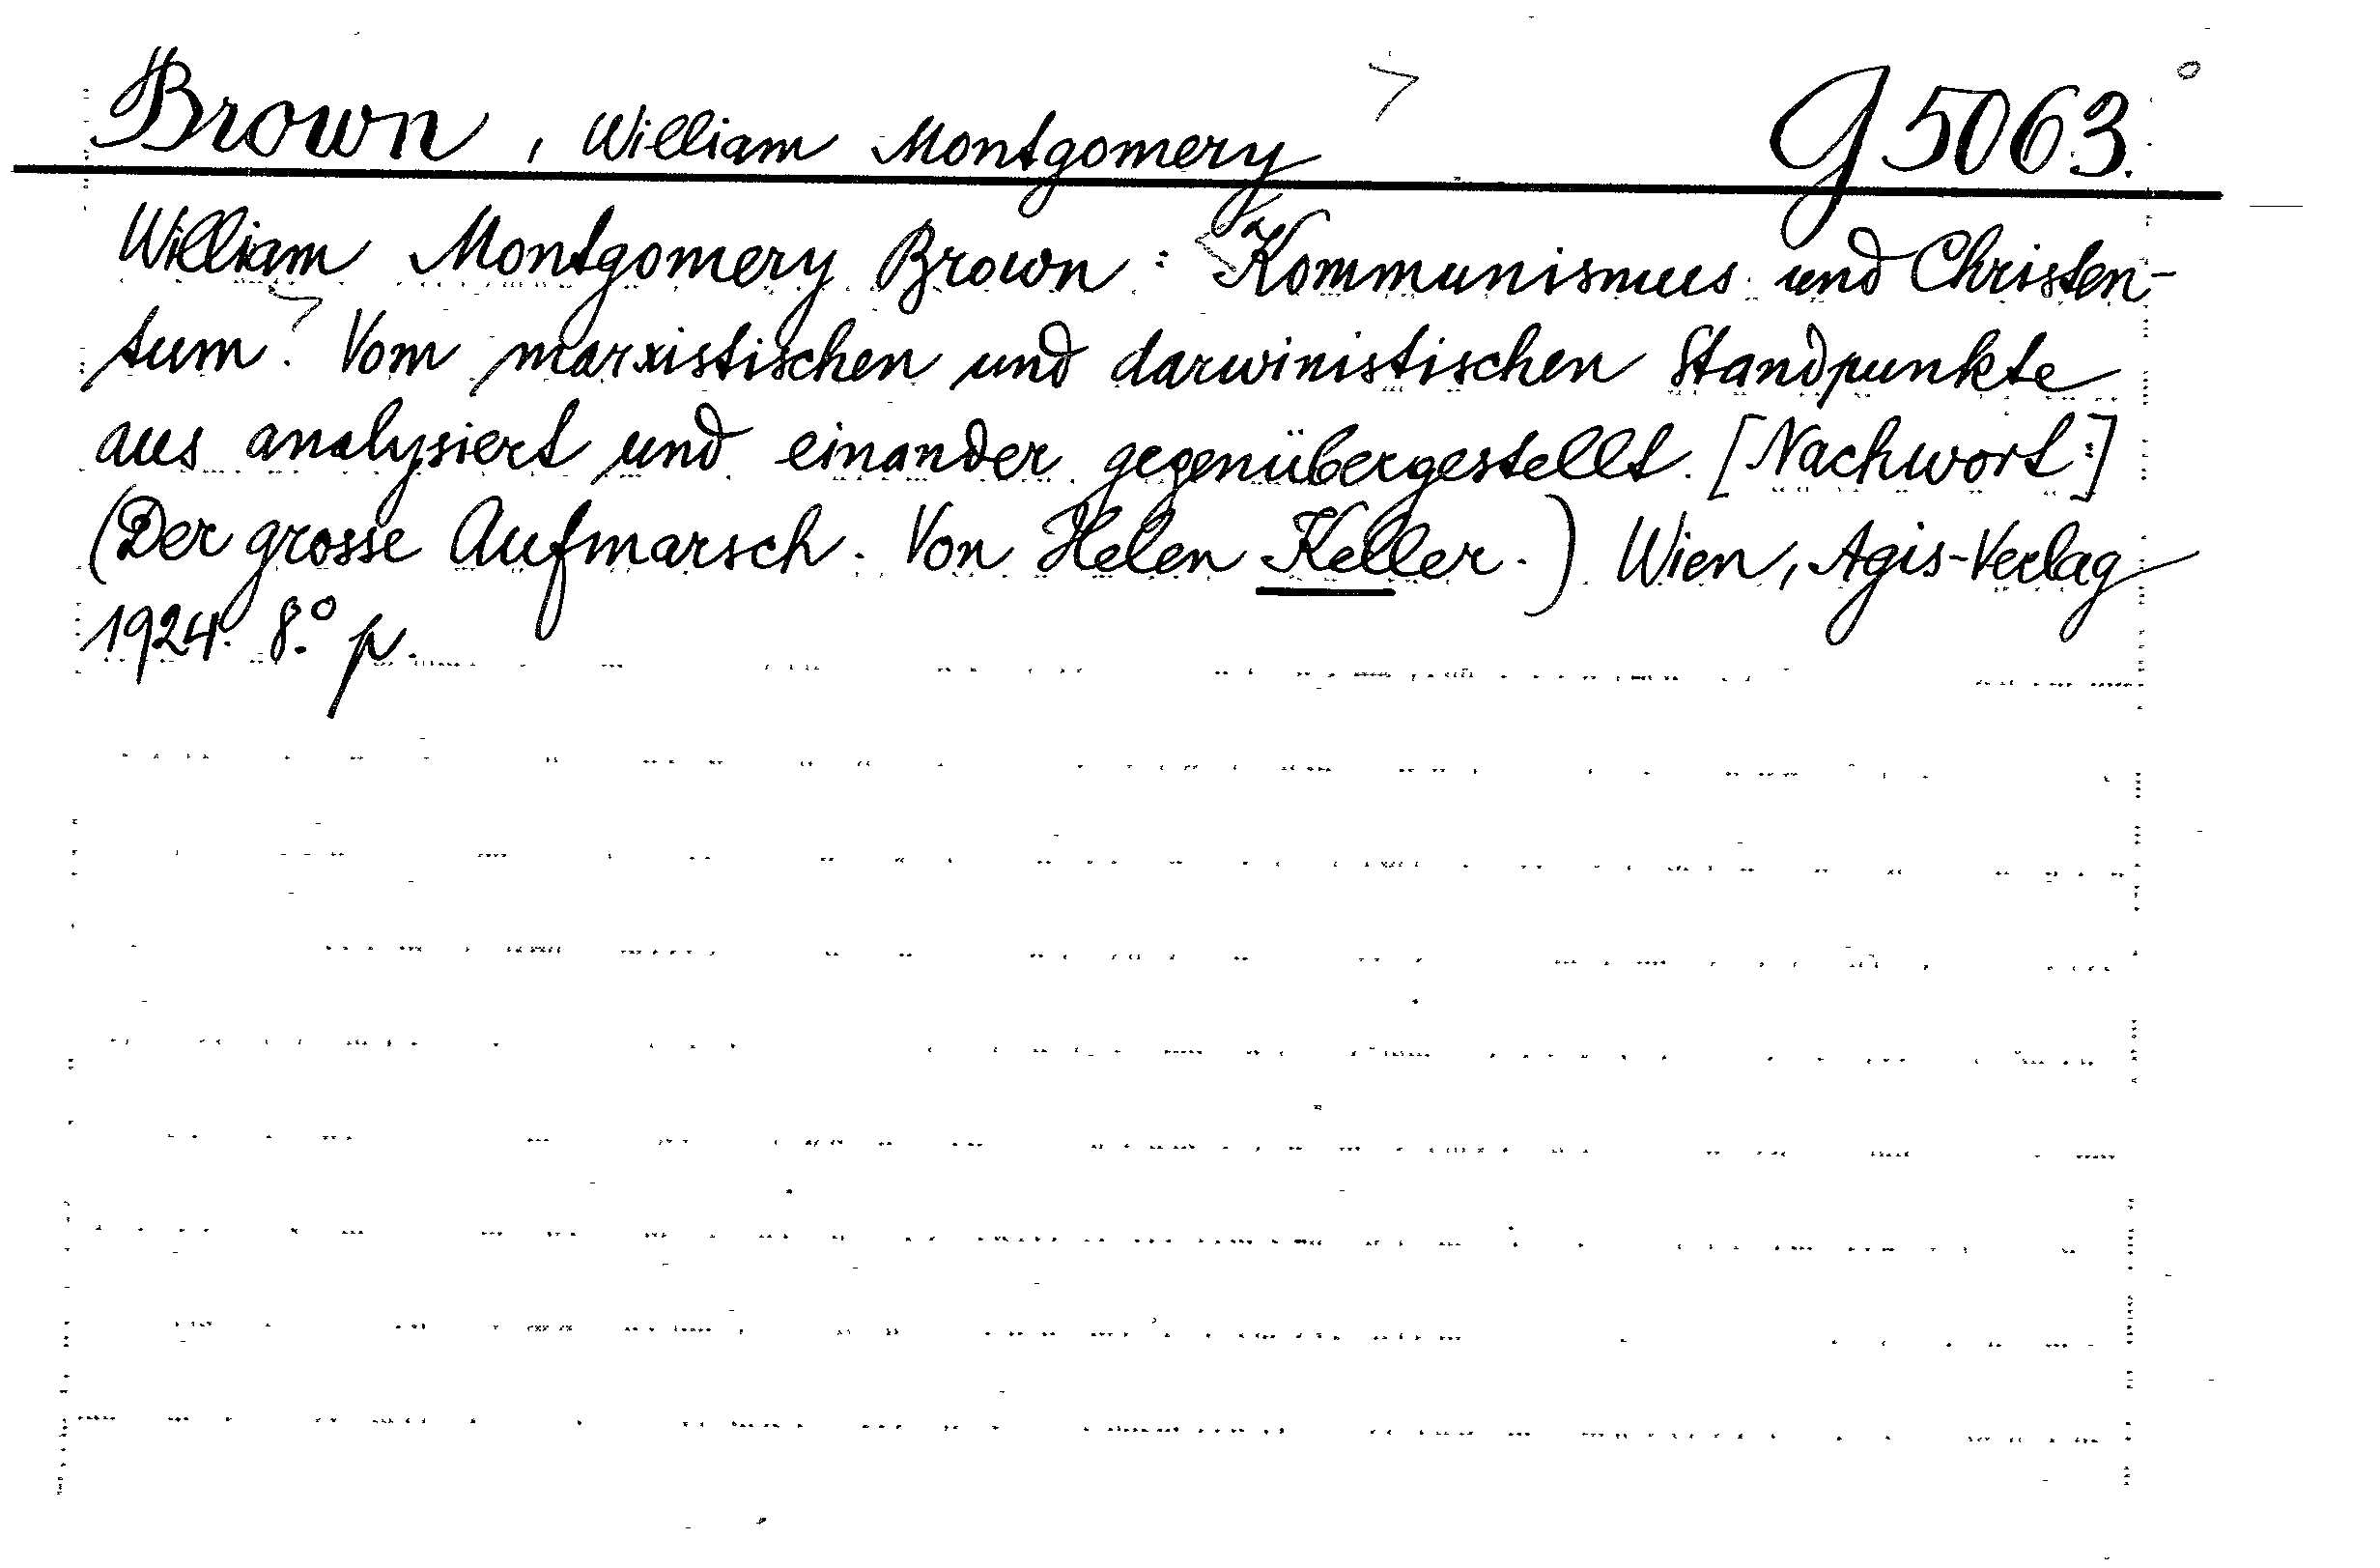 Brown, William Montgomery G 5063.
William Montgomery Brown: Kommunismus und Christen-
tum. Vom marxistischen und darwinistischen Standpunkte
aus analysiert und einander gegenübergestellt. [Nachwort:]
(Der grosse Aufmarsch. Von Helen Keller.) Wien, Agis-Verlag
1924. 8.° p.